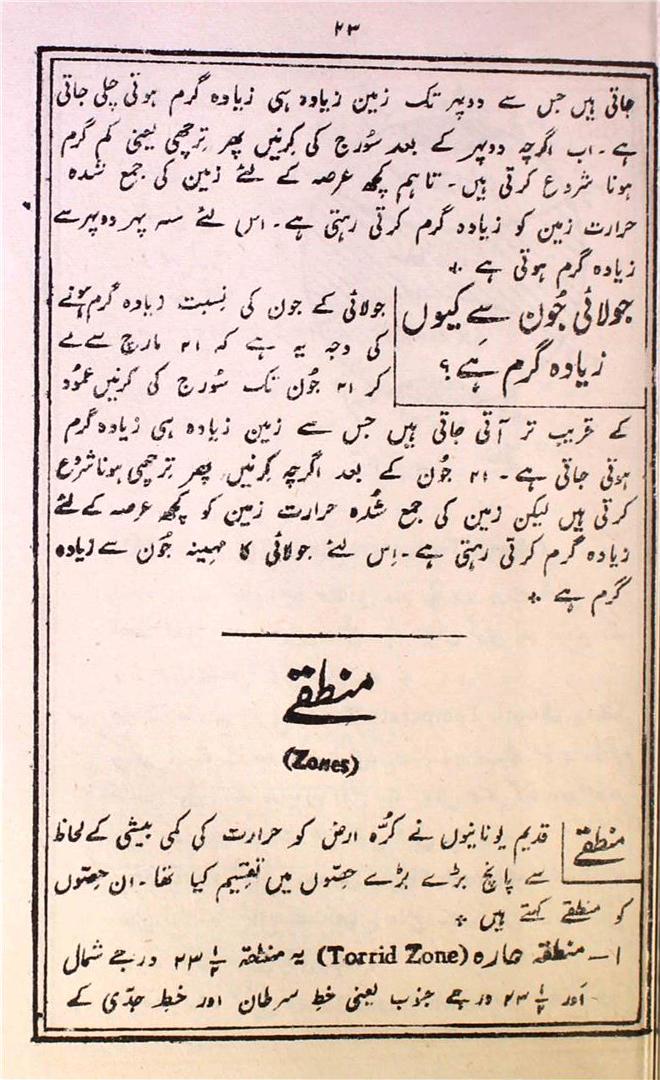 ۲۳
جاتی ہیں جس سے دوپہر تک زمین زیادہ ہی زیادہ گرم ہوتی چلی جاتی
ہے۔ اب اگرچہ دوپہر کے بعد سُورج کی کرنیں پھر ترچھی یعنی کم گرم
ہونا شروع کرتی ہیں۔ تاہم کچھ عرصہ کے لئے زمین کی جمع شدہ
حرارت زمین کو زیادہ گرم کرتی رہتی ہے۔ اس لئے سہ پہر دوپہر سے
زیادہ گرم ہوتی ہے ۔
جولائی جُون سے کیوں
زیادہ گرم ہے؟
جولائی کے جون کی نِسبت زیادہ گرم ہونے
کی وجہ یہ ہے کہ ۲۱ مارچ سے لے
کر ۲۱ جُون تک سُورج کی کرنیں عمُود
کے قریب تر آتی جاتی ہیں جس سے زمین زیادہ ہی زیادہ گرم
ہوتی جاتی ہے۔ ۲۱ جُون کے بعد اگرچہ کرنیں پھر ترچھی ہونا شروع
کرتی ہیں لیکن زمین کی جمع شُدہ حرارت زمین کو کچھ عرصہ کے لئے
زیادہ گرم کرتی رہتی ہے۔ اِس لئے جولائی کا مہینہ جُون سے زیادہ
گرم ہے ۔
منطقے
(Zones)
منطقے
قدیم یُونانیوں نے کُرّہ ارض کو حرارت کی کمی بیشی کے لحاظ
سے پانچ بڑے بڑے حِصّوں میں تقسیم کیا تھا۔ ان حِصّوں
کو منطقے کہتے ہیں ۔
۱۔ منطقہ حارہ (Torrid Zone) یہ منطقہ ۲۳ ۱/۲ درجے شمال
اور ۲۳ ۱/۲ درجے جنوب یعنی خطِ سرطان اور خطِ جدّی کے